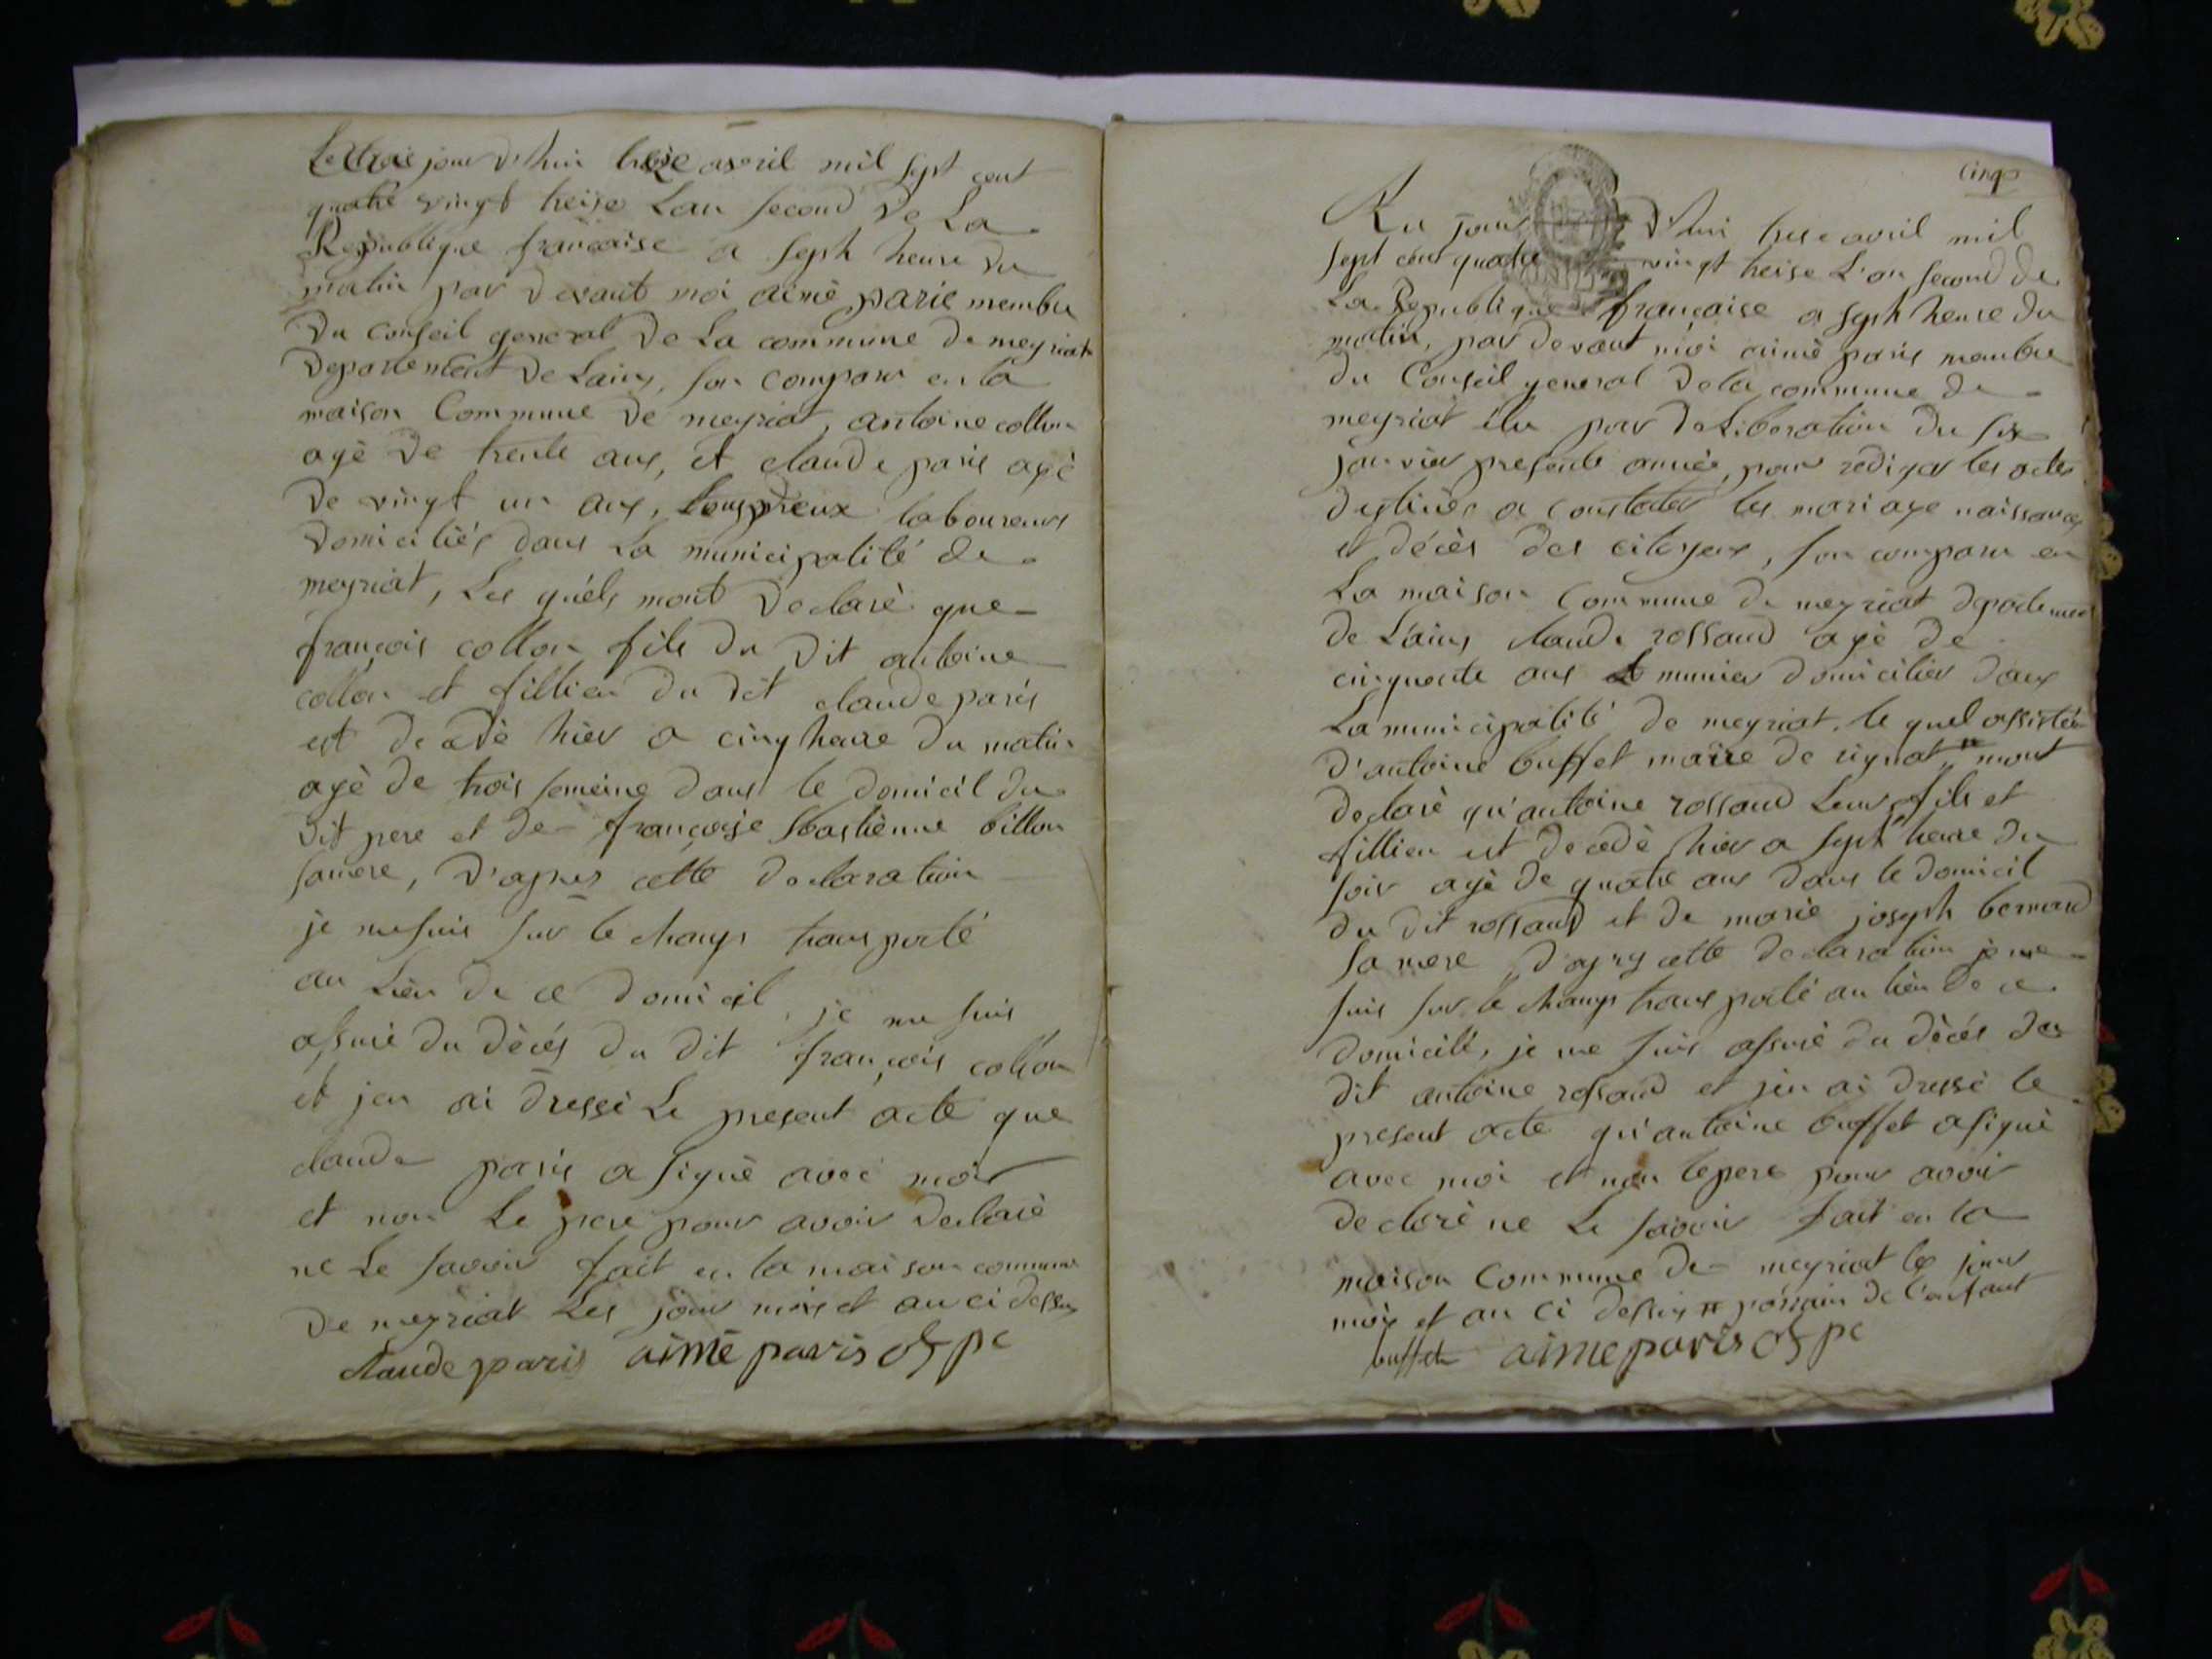 jour d'hui treise avril mil sept cent
quatre vingt treise Lan second de La
Republique française a sept heure du
matin par devant moi aimé paris membre
du conseil general de La commune de meyriat
departement de Lains, son comparu en la
maison Commune de meyriat, antoine collon
agé de trente ans, et claude paris agé
de vingt un ans, tous deux laboureurs
domiciliés dans La municipalité de
meyriat, Les quéls mont declaré que
françois collon fils du dit antoine
collon et fillieu du dit claude paris
est decedé hier a cinq heure du matin
agé de trois semeine dans le domicil du
dit pere et de françoise sbastienne billon
samere, d'apres cette declaration
je mesuis sur le champs transporté
au Lieu de ce domicil, je me suis
assuré du décés du dit françois collon
et jen ai dressé Le present acte que
claude paris a signé avec moi
et non Le pere pour avoir declaré
ne Le savoir fait en la maison commune
de meyriat Les jour mois et an ci dessus
claude paris aimé paris of pc
cinq
Au jour d'hui treise avril mil
sept cent quatre vingt treise L'an second de
La Republique française a sept heure du
matin, par devant moi aimé paris membre
du Conseil general de la commune de
meyriat élu par deLiberation du six
janvier presente année, pour rediger les actes
destinés a constater les mariage naissances
et décès des citoyens, son comparu en
La maison Commune de meyriat departement
de L'ains claude rossand agé de
cinquente ans munier domicilier dans
La municipalité de meyriat, le quel assistée
d'antoine buffet maire de rignat # mont
declaré qu'antoine rossand Leur fils et
fillieu est decedé hier a sept heure du
soir agé de quatre ans dans le domicil
du dit rossand et de marie joseph bernand
sa mere, d'apres cette declaration je me
suis sur le champs transporté au lieu de ce
domicile, je me suis assuré du décés du
dit antoine rossand et jén ai dressé le
present acte qu'antoine buffet asigné
avec moi et non lepere pour avoir
declaré ne Le savoir fait en la
maison Commune de meyriat les jour
mois et an ci dessus # parrain de l'enfant
buffet aimé paris of pc